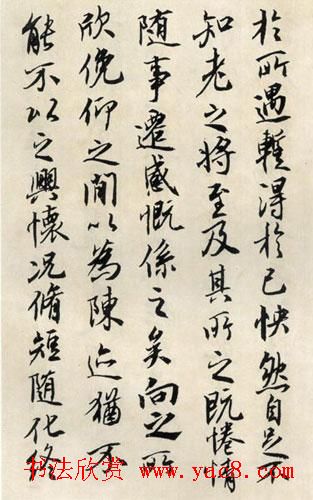 於所遇暫得於己快然自足不
知老之將至及其所之既惓情
隨事遷感慨係之矣向之所
欣俛仰之間以為陳迹猶不
能不以之興懷況脩短隨化終
书法欣赏 www.yac8.com